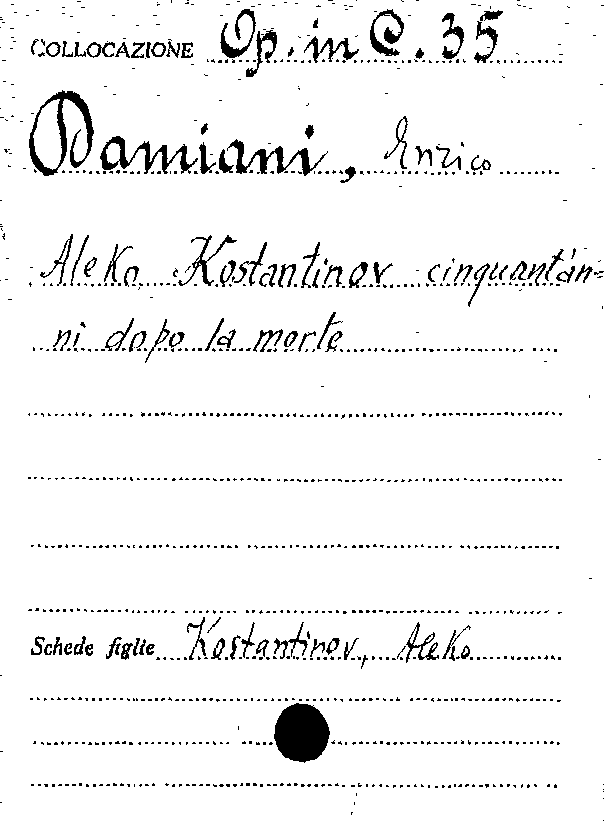 COLLOCAZIONE Op. in C. 35
Damiani, Enrico
Aleko Kostantinov cinquantan=
ni dopo la morte
Schede figlie Kostantinov, Aleko